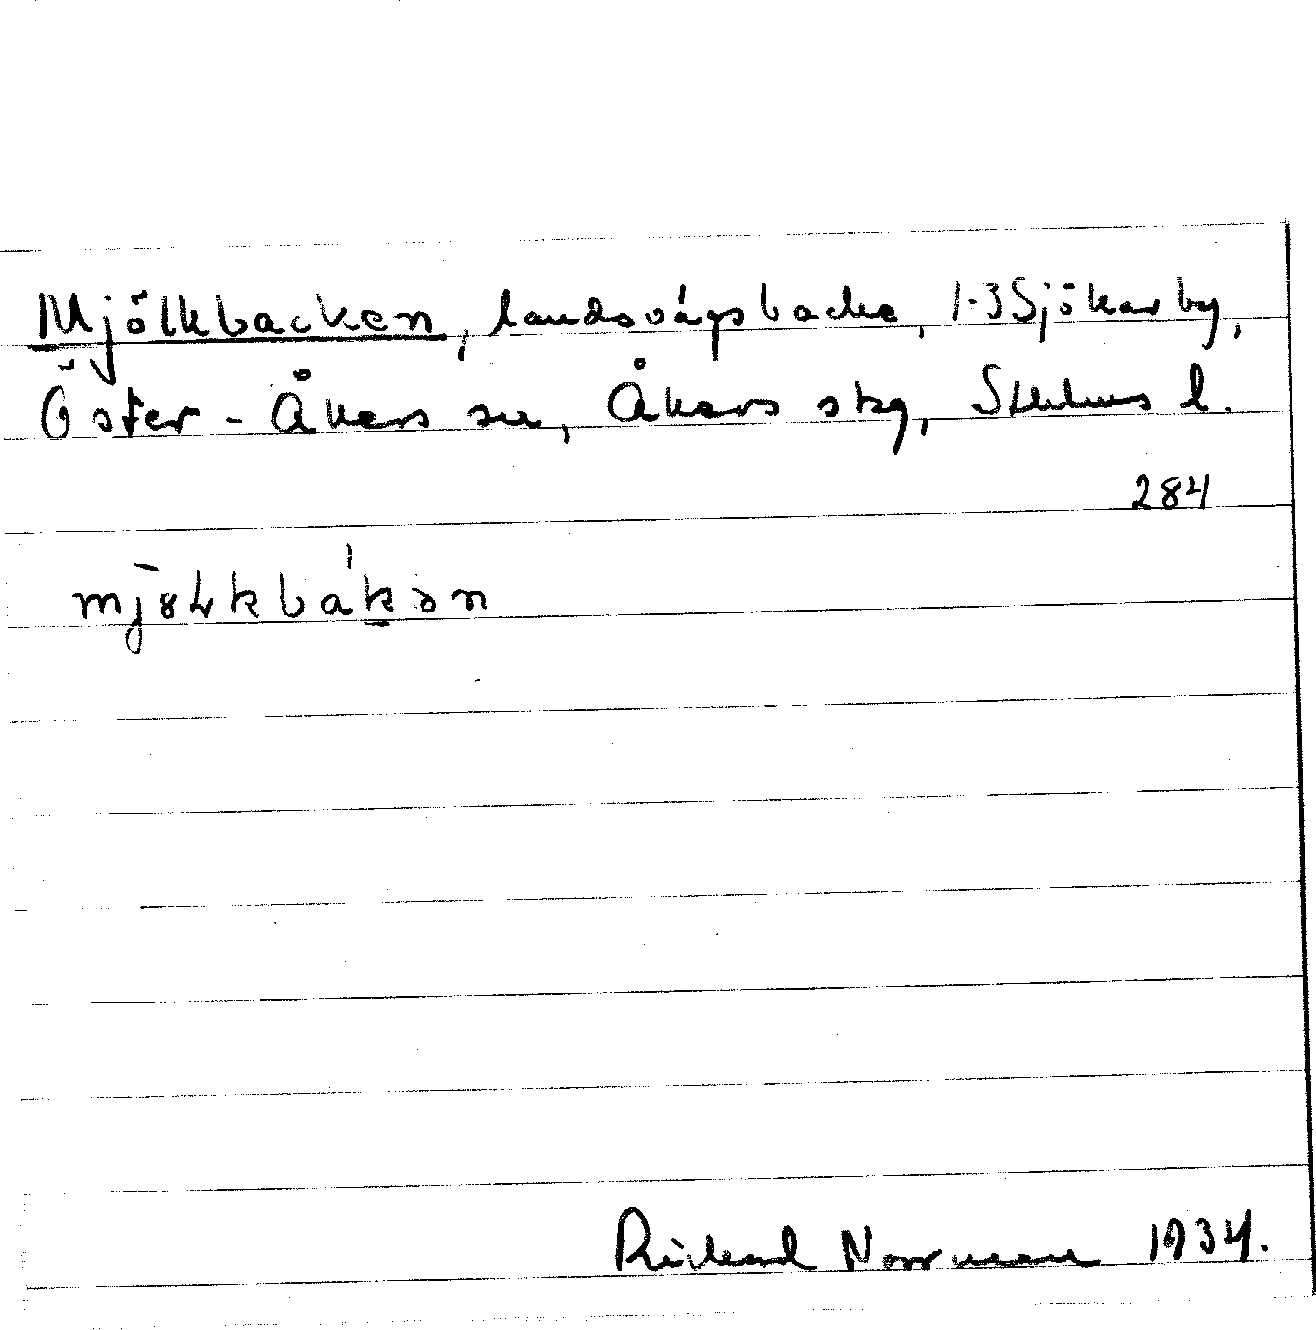 Mjölkbacken, landsvägsbacke, 1-3 Sjökarby,
Öster-Åkers sn, Åkers skg, Sthlms l.
284
mjölkbákən
Rickard Norrman 1934.